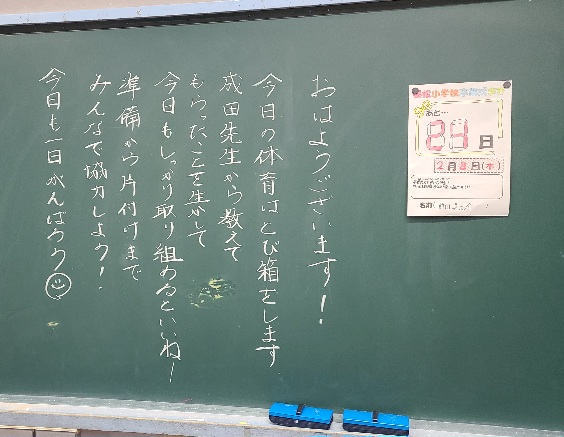 おはようございます！
今日の体育はとび箱をします
成田先生から教えて
もらったことを生かして
今日もしっかり取り組めるといいね！
準備から片付けまで
みんなで協力しよう！
今日も一日がんばろう
小学校
あと…
23日
2月8日(木)
名前